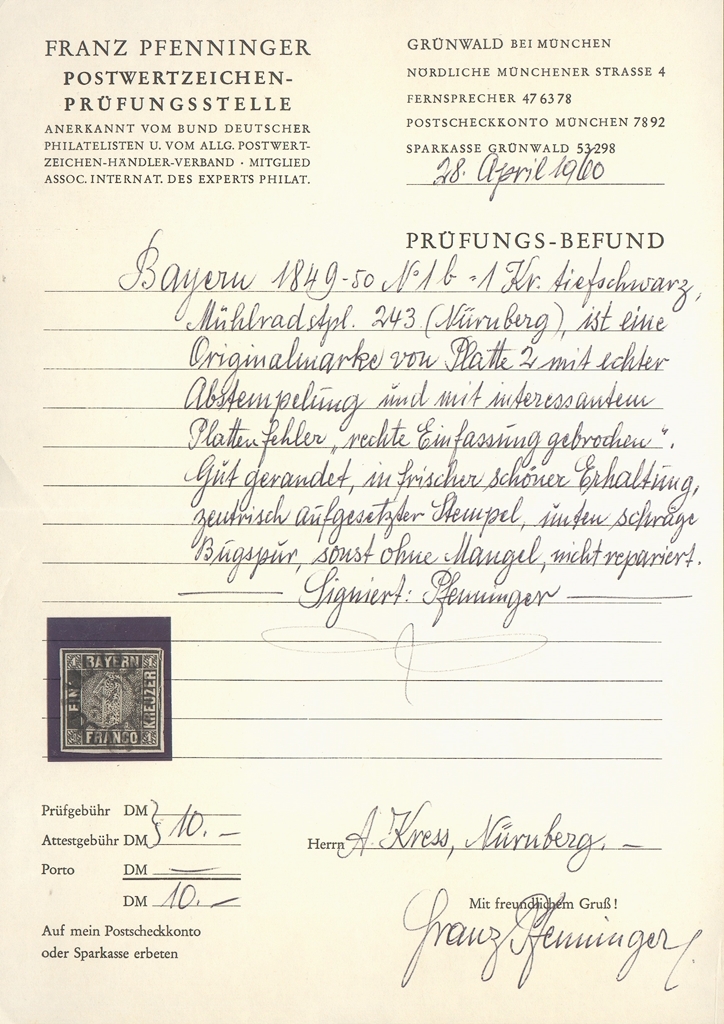 FRANZ PFENNINGER
POSTWERTZEICHEN-
PRÜFUNGSSTELLE
ANERKANNT VOM BUND DEUTSCHER
PHILATELISTEN U. VOM ALLG. POSTWERT-
ZEICHEN-HÄNDLER-VERBAND · MITGLIED
ASSOC. INTERNAT. DES EXPERTS PHILAT.
GRÜNWALD BEI MÜNCHEN
NÖRDLICHE MÜNCHENER STRASSE 4
FERNSPRECHER 47 63 78
POSTSCHECKKONTO MÜNCHEN 78 92
SPARKASSE GRÜNWALD 53 298
28. April 1960
PRÜFUNGS-BEFUND
Bayern 1849-50 No 1 b = 1 Kr. tiefschwarz,
Mühlradstpl. 243 (Nürnberg), ist eine
Originalmarke von Platte 2 mit echter
Abstempelung und mit interessantem
Plattenfehler „rechte Einfassung gebrochen".
Gut gerandet, in frischer schöner Erhaltung,
zentrisch aufgesetzter Stempel, unten schräge
Bugspur, sonst ohne Mangel, nicht repariert.
Signiert: Pfenninger
BAYERN
EIN
KREUZER
FRANCO
Prüfgebühr DM
Attestgebühr DM 10.—
Porto DM —
DM 10.—
Auf mein Postscheckkonto
oder Sparkasse erbeten
Herrn A. Kress, Nürnberg. —
Mit freundlichem Gruß!
Franz Pfenninger